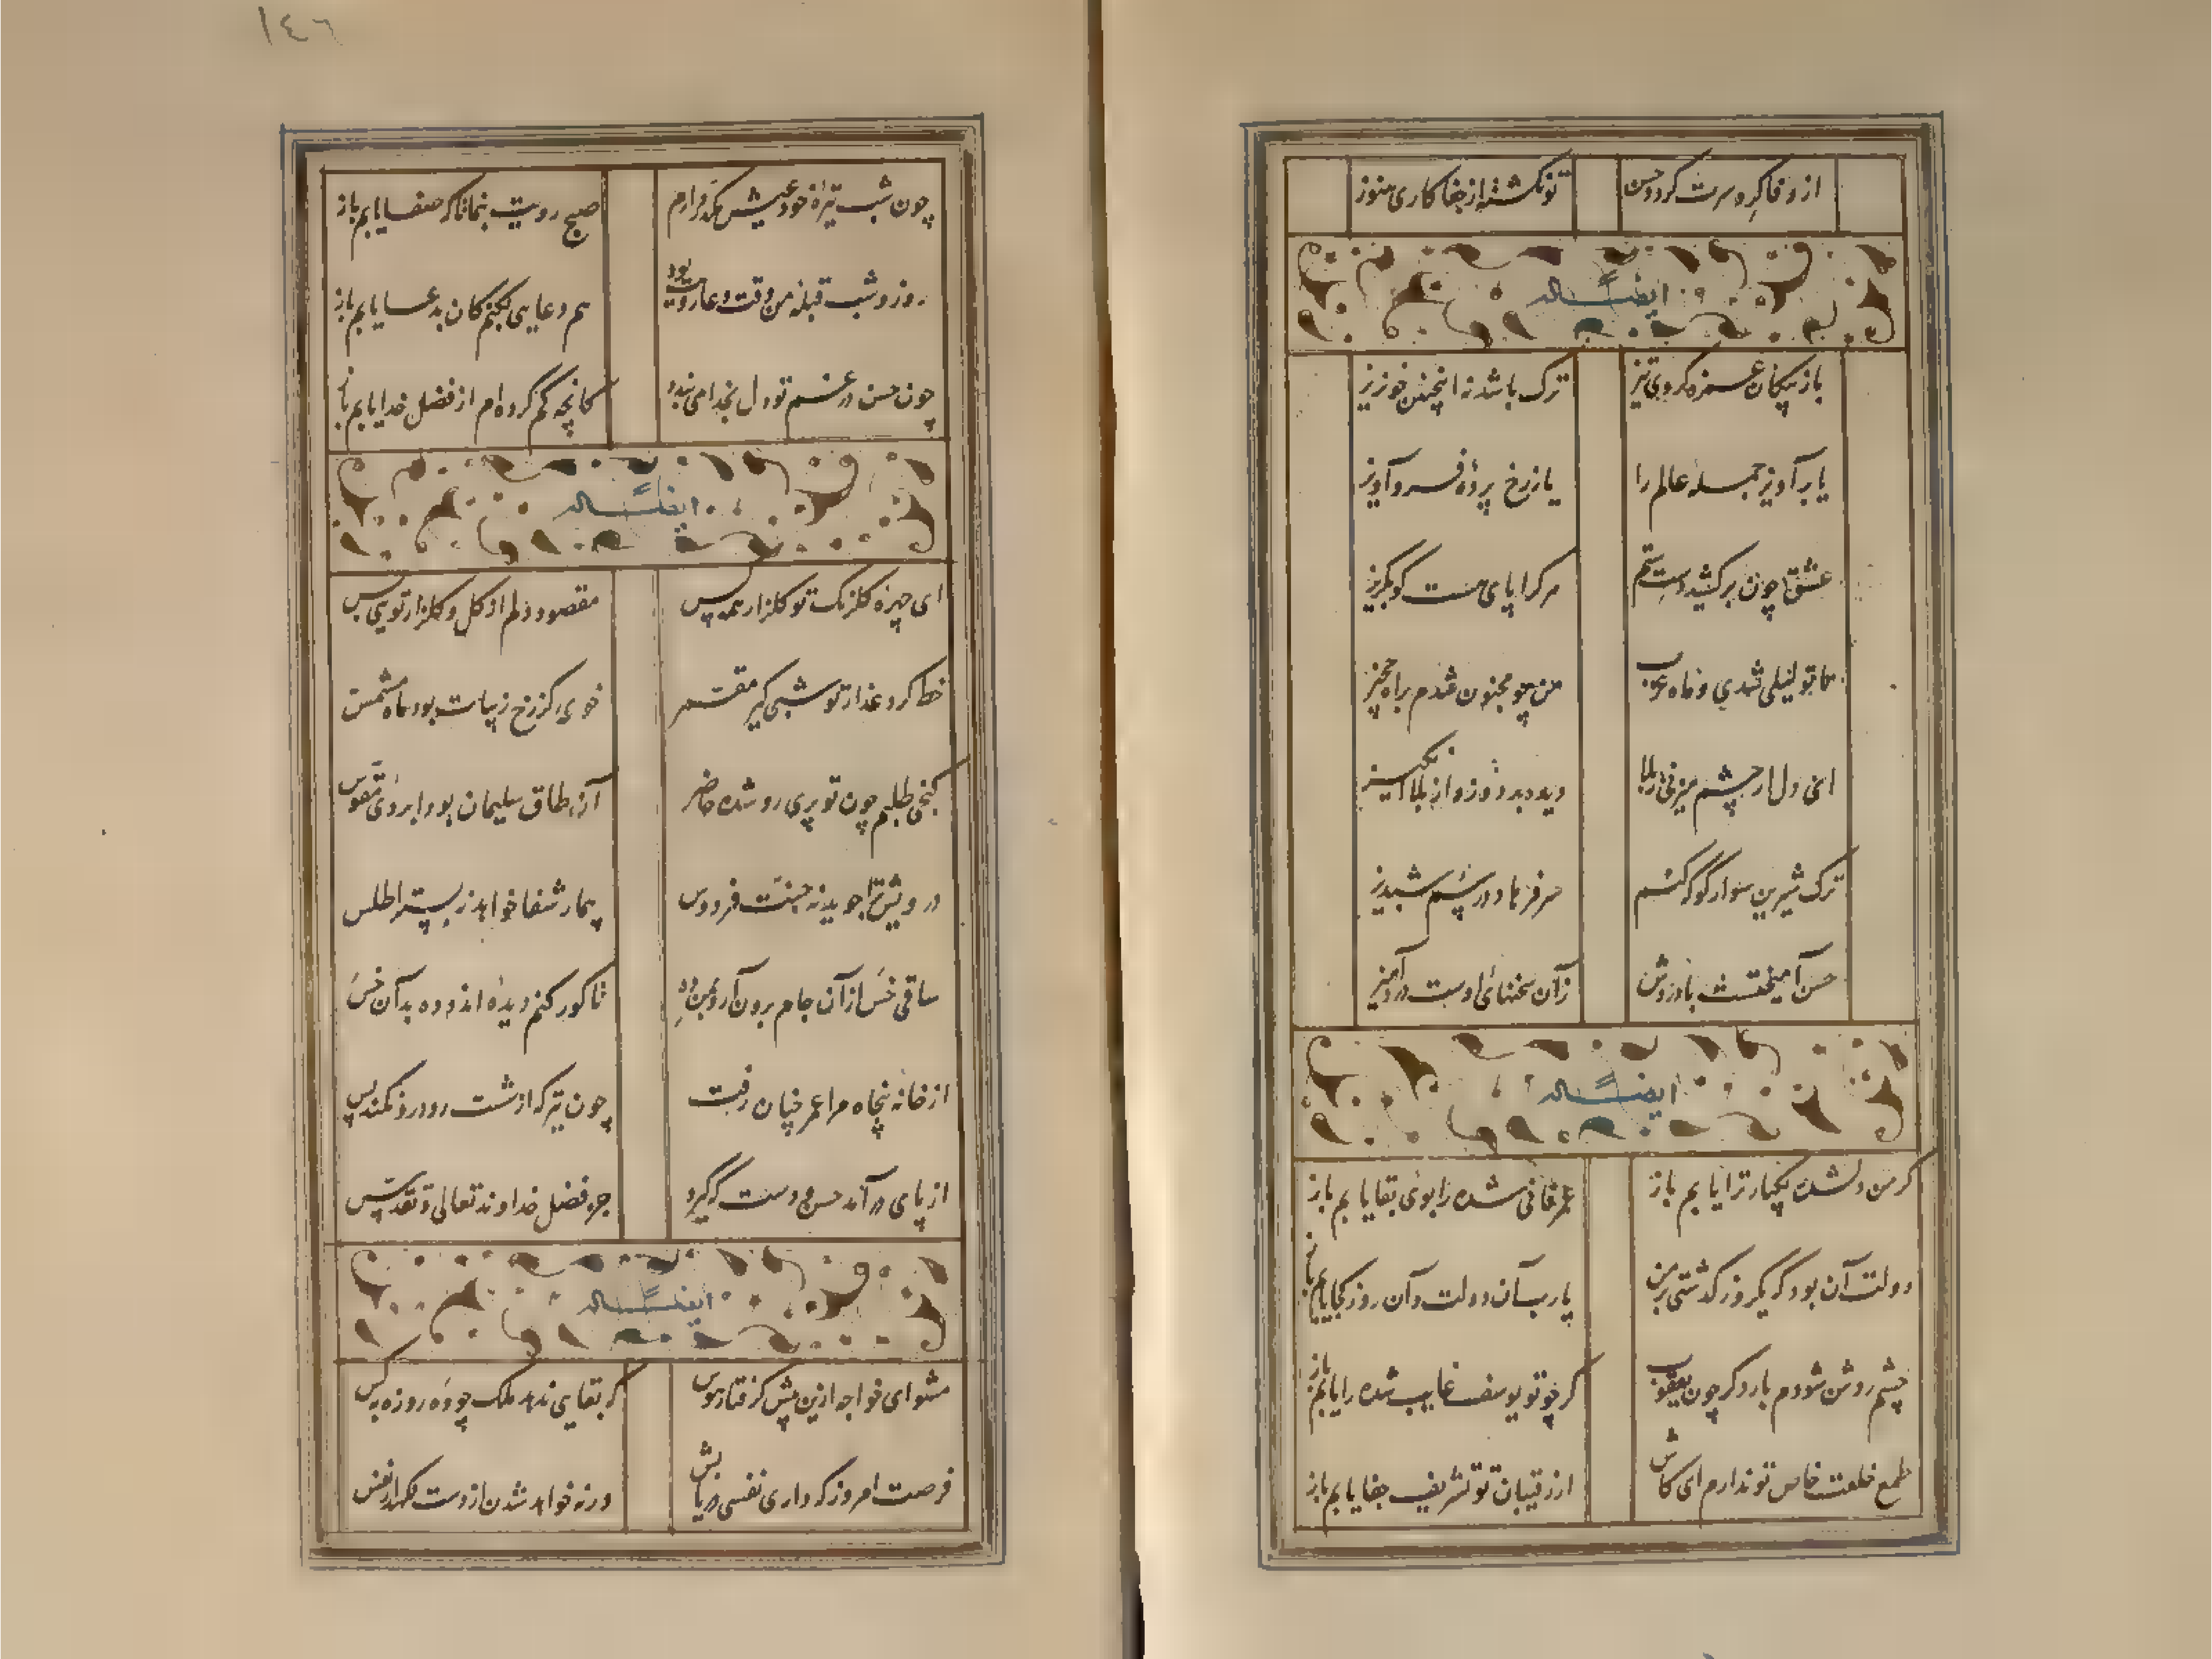 از وفا گرد سرت گردد حسن
تو نگشته از جفا کاری هنوز
ایضاً له
باز پیکان غمزه کردی تیز
ترک باشد نه اینچنین خونریز
یا برآویز جمله عالم را
یا ز رخ پرده فرو آویز
عشق چون برکشید دست ستم
هر کرا پای هست گو بگریز
تا تو لیلی شدی و ماه عرب
من چو مجنون شدم براه حجیز
ای دل ار چشم میزنی ز بلا
دیده بدوز و از بلا
ترک شیرین سوار گو که کنم
سر فرهاد در سم شبدیز
حسن آمیختست با دردش
زآن سخنهای اوست دردآمیز
ایضاً له
گر من دلشده یکبار ترا یابم باز
عمر فانی شده را بوی بقا یابم باز
دولت آن بود که یکروز گذشتی بر من
یارب آن دولت و آن روز کجا یابم باز
چشم روشن شودم بار دگر چون یعقوب
گر چو تو یوسف غایب شده را یابم باز
طمع خلعت خاص تو ندارم ای کاش
از رقیبان تو تشریف جفا یابم باز
١٤٦
چون شب تیره خود عیش مکدر دارم
صبح رویت بنما تا که صفا یابم باز
روز و شب قبله من وقت دعا رویت بود
هم دعایی بکنم کان بدعا یابم باز
چون حسن در غم تو دل بخدا می بندد
کانچه گم کرده ام از فضل خدا یابم باز
ایضاً له
ای چهره گلرنگ تو گلزار همه پس
مقصود دلم از گل و گلزار تویی بس
خط گرد عذار تو شبی گیر مقمر
خوی کز رخ زیبات بود ماه مشمس
گنجی طلبم چون تو پری رو شده حاضر
آن طاق سلیمان بود ابروی مقوس
درویش ترا جوید نه جنت فردوس
بیمار شفا خواهد نه بستر اطلس
ساقی خس از آن جام برون آر و بمن ده
تا کور کنم دیده اندوه بدآن خس
از خانه پنجاه مرا عمر چنان رفت
چون تیر که از شست رود رو نکند پس
از پای درآمد حسن و دست که گیرد
جز فضل خداوند تعالی و تقدس
ایضاً له
مشو ای خواجه ازین پیش گرفتار هوس
گر بقایی ندهد ملک چو ده روزه بکس
فرصت امروز که داری نفسی دریابش
ورنه خواهد شدن از دست نگهدار نفس